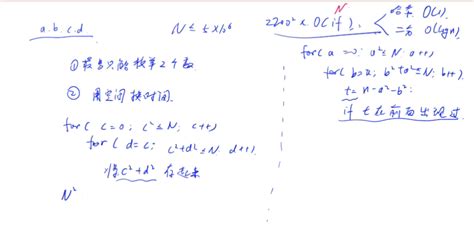 a.b.c.d
N ≤ 5×10^6
① 最多只能枚举2个数
② 用空间换时间.
for( c=0; c²≤N; c++)
for( d=c; c²+d²≤N; d++)
将c²+d² 存起来
N²
N
2200² × O(if).
哈希 O(1).
二分 O(logn)
for(a=0; a²≤N; a++)
for(b=a; b²+a²≤N; b++).
t=n-a²-b².
if t在前面出现过